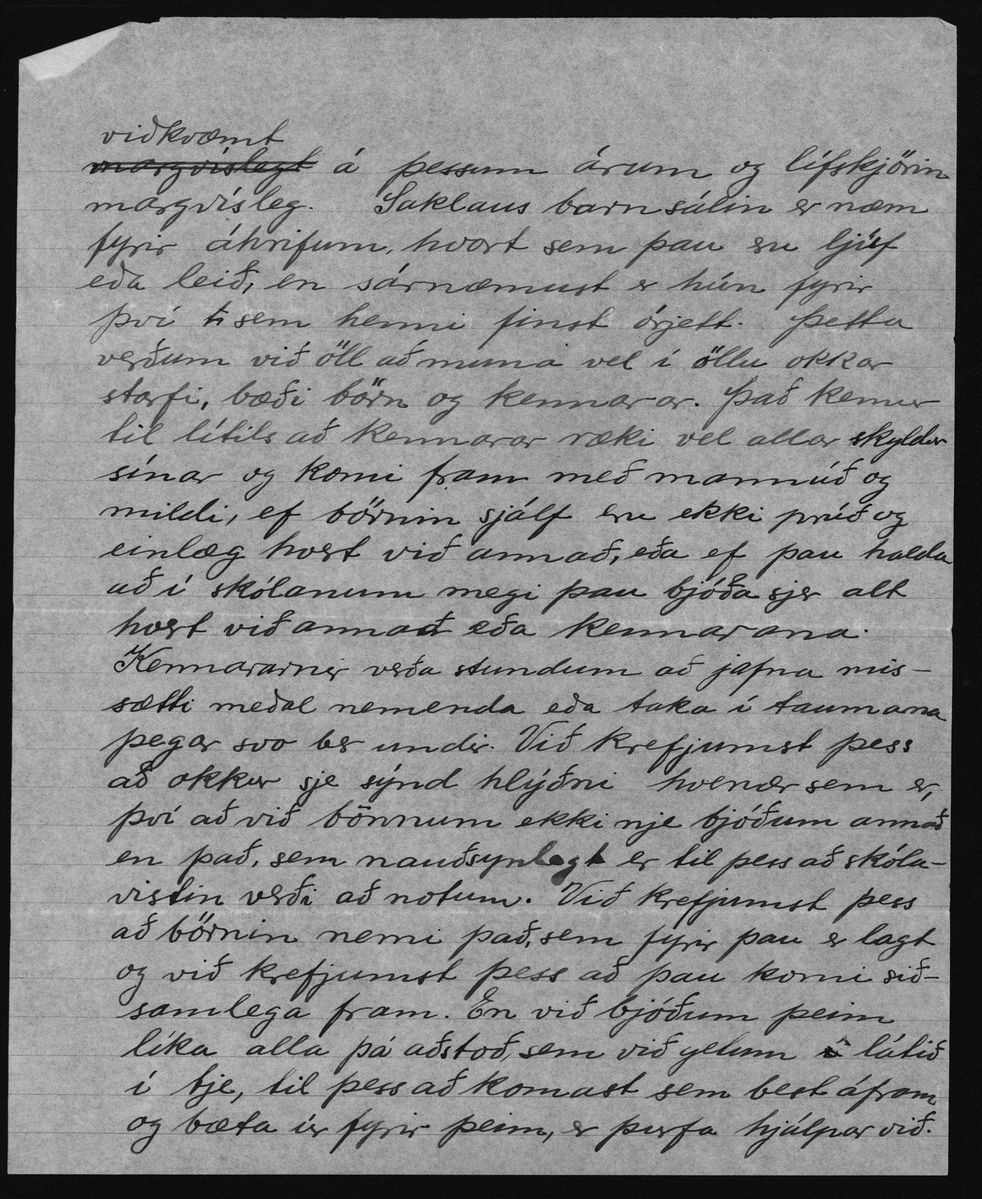 viðkvæmt
margvíslegt á þessum árum og lífskjörin
margvísleg. Saklaus barnsálin er næm
fyrir áhrifum, hvort sem þau eru ljúf
eða leið, en sárnæmust er hún fyrir
því sem henni finst órjett. Þetta
verðum við öll að muna vel í öllu okkar
starfi, bæði börn og kennarar. Það kemur
til lítils að kennarar ræki vel allar skyldur
sínar og komi fram með mannúð og
mildi, ef börnin sjálf eru ekki prúð og
einlæg hvert við annað, eða ef þau halda
að í skólanum megi þau bjóða sjer alt
hvert við annað eða kennarana.
Kennararnir verða stundum að jafna mis-
sætti meðal nemenda eða taka í taumana
þegar svo ber undir. Við krefjumst þess
að okkur sje sýnd hlýðni hvenær sem er,
því að við bönnum ekki nje bjóðum annað
en það, sem nauðsynlegt er til þess að skóla-
vistin verði að notum. Við krefjumst þess
að börnin nemi það, sem fyrir þau er lagt
og við krefjumst þess að þau komi sið-
samlega fram. En við bjóðum þeim
líka alla þá aðstoð, sem við getum látið
í tje, til þess að komast sem best áfram
og bæta úr fyrir þeim, er þurfa hjálpar við.